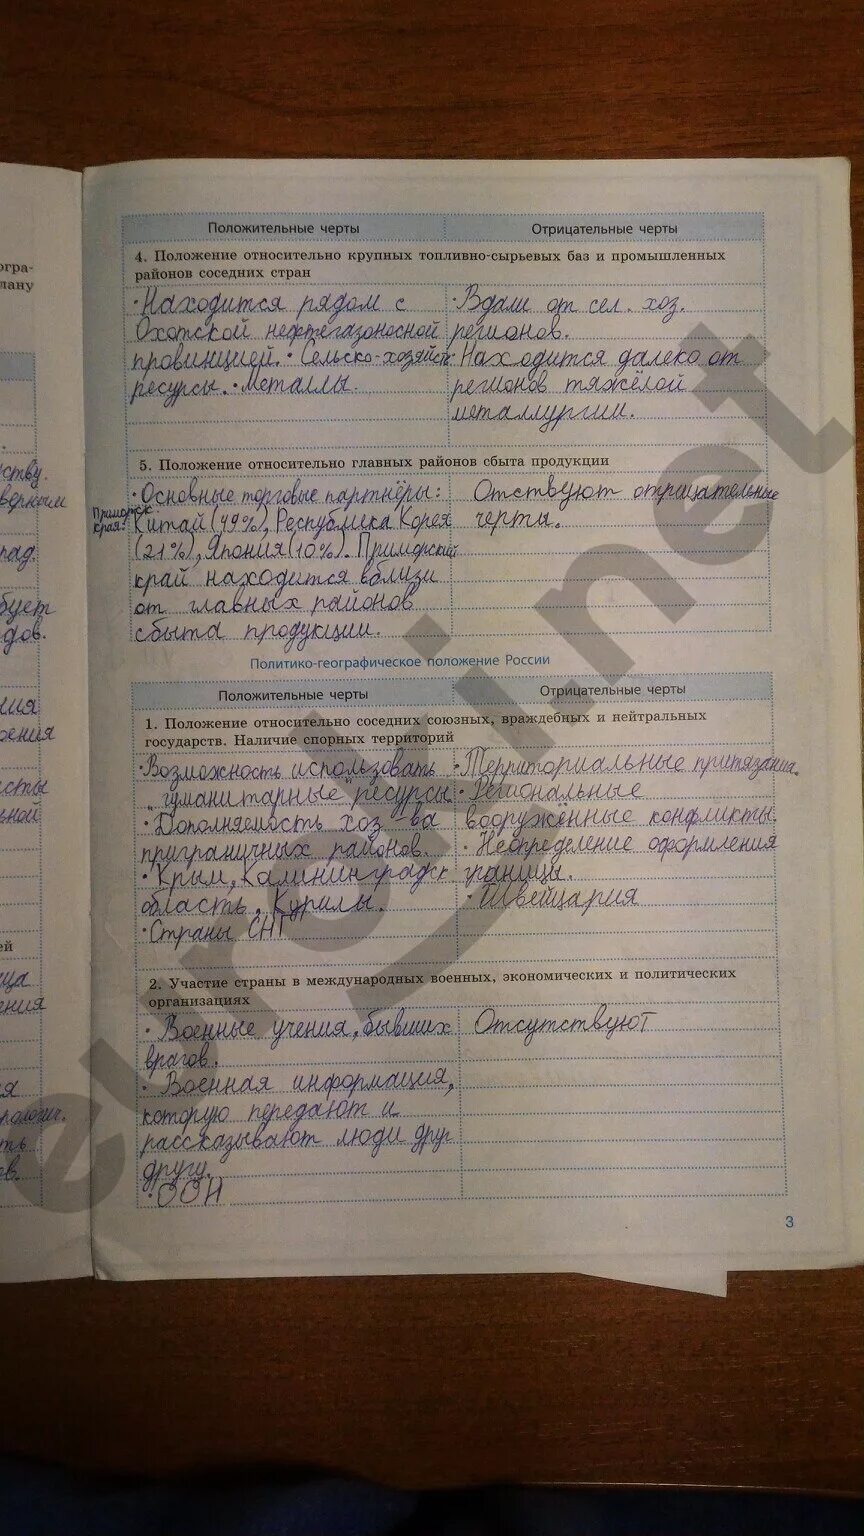 огра-
лану
ству.
верным
рад.
бует
дов.
ния
ения
сты
ьной
ей
ица
ения
ия
ть
ев.
Положительные черты Отрицательные черты
4. Положение относительно крупных топливно-сырьевых баз и промышленных
районов соседних стран
• Находится рядом с
Охотской нефтегазоносной
провинцией. • Сельско-хозяйств
ресурсы. • Металлы.
• Вдали от сел. хоз.
регионов.
Находится далеко от
регионов тяжёлой
металлургии.
5. Положение относительно главных районов сбыта продукции
Приморск.
края:
• Основные торговые партнёры:
Китай (49%), Республика Корея
(21%), Япония (10%). Приморский
край находится вблизи
от главных районов
сбыта продукции.
Отствуют отрицательные
черты.
Политико-географическое положение России
Положительные черты Отрицательные черты
1. Положение относительно соседних союзных, враждебных и нейтральных
государств. Наличие спорных территорий
• Возможность использовать
„гуманитарные" ресурсы
• Дополняемость хоз-ва
приграничных районов.
• Крым, Калининградск
область, Курилы.
• Страны СНГ
• Территориальные притязания.
• Региональные
вооружённые конфликты.
• Неопределение оформления
границы.
• Швейцария
2. Участие страны в международных военных, экономических и политических
организациях
• Военные учения, бывших
врагов.
• Военная информация,
которую передают и
рассказывают люди друг
другу.
• ООН
Отсутствуют
3
euroki.net